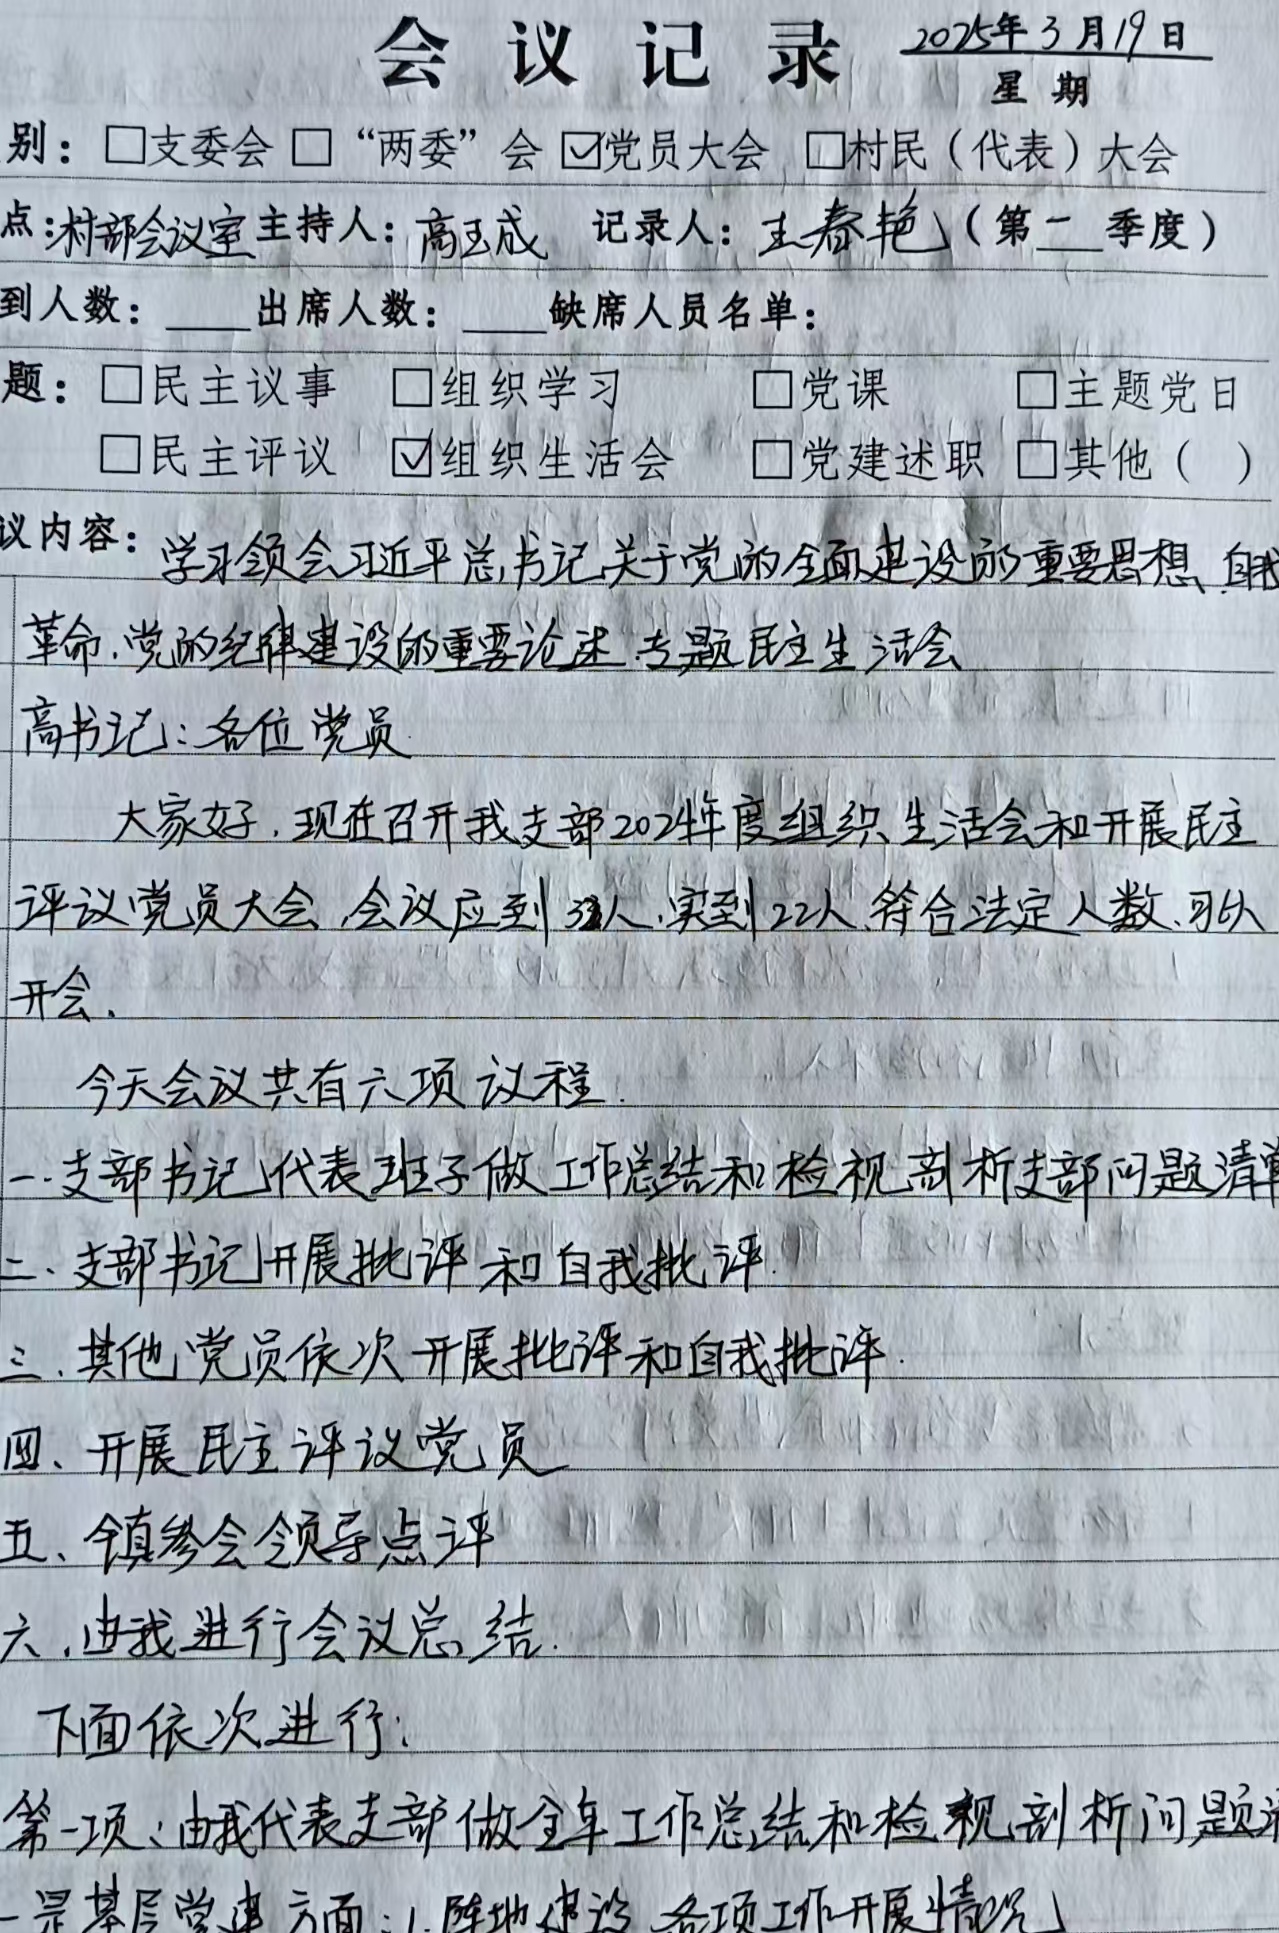 会议记录 2025年3月19日
星期
别：□支委会 □“两委”会 ☑党员大会 □村民（代表）大会
点：村部会议室 主持人：高玉成 记录人：王春艳（第一季度）
到人数：____出席人数：____缺席人员名单：
题：□民主议事 □组织学习 □党课 □主题党日
□民主评议 ☑组织生活会 □党建述职 □其他（ ）
议内容：学习领会习近平总书记关于党的全面建设的重要思想、自我
革命、党的纪律建设的重要论述.专题民主生活会
高书记：各位党员
大家好.现在召开我支部2024年度组织生活会和开展民主
评议党员大会,会议应到人,实到22人,符合法定人数,可以
开会.
今天会议共有六项议程.
一.支部书记代表班子做工作总结和检视剖析支部问题清单
二、支部书记开展批评和自我批评.
三.其他党员依次开展批评和自我批评.
四、开展民主评议党员
五、镇参会领导点评
六.由我进行会议总结.
下面依次进行：
第一项：由我代表支部做全年工作总结和检视剖析问题清
一是基层党建方面：1.阵地建设 各项工作开展情况